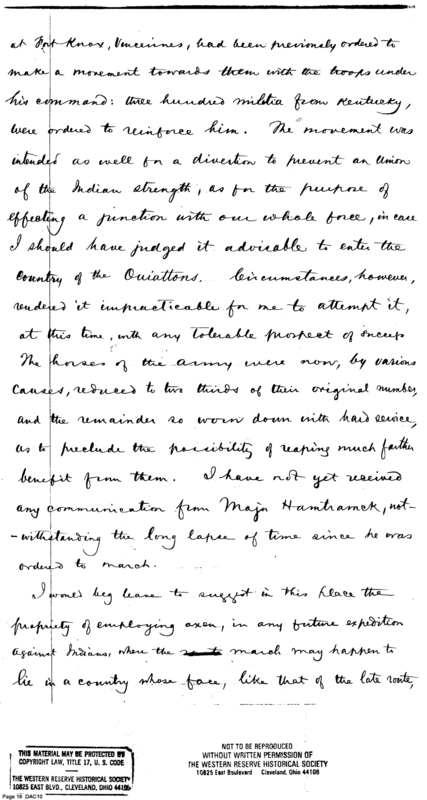 at Fort Knox, Vincennes, had been previously ordered to
make a movement towards them with the troops under
his command: three hundred militia from Kentucky,
were ordered to reinforce him. The movement was
intended as well for a divertion to prevent an Union
of the Indian strength, as for the purpose of
effecting a junction with our whole force, in case
I should have judged it advisable to enter the
Country of the Ouiattons. Circumstances, however,
rendered it impracticable for me to attempt it,
at this time, with any tolerable prospect of success
The horses of the army were now, by various
causes, reduced to two thirds of their original number,
and the remainder so worn down with hard service,
as to preclude the possibility of reaping much farther
benefit from them. I have not yet received
any communication from Major Hamtramck, not-
-withstanding the long lapse of time since he was
ordered to march.
I would beg leave to suggest in this place the
propriety of employing axen, in any future expedition
against Indians, where the march may happen to
lie in a country whose face, like that of the late route,
THIS MATERIAL MAY BE PROTECTED BY
COPYRIGHT LAW, TITLE 17, U. S. CODE
THE WESTERN RESERVE HISTORICAL SOCIETY
10825 EAST BLVD., CLEVELAND, OHIO 44106
NOT TO BE REPRODUCED
WITHOUT WRITTEN PERMISSION OF
THE WESTERN RESERVE HISTORICAL SOCIETY
10825 East Boulevard Cleveland, Ohio 44106
Page 16 DAC10